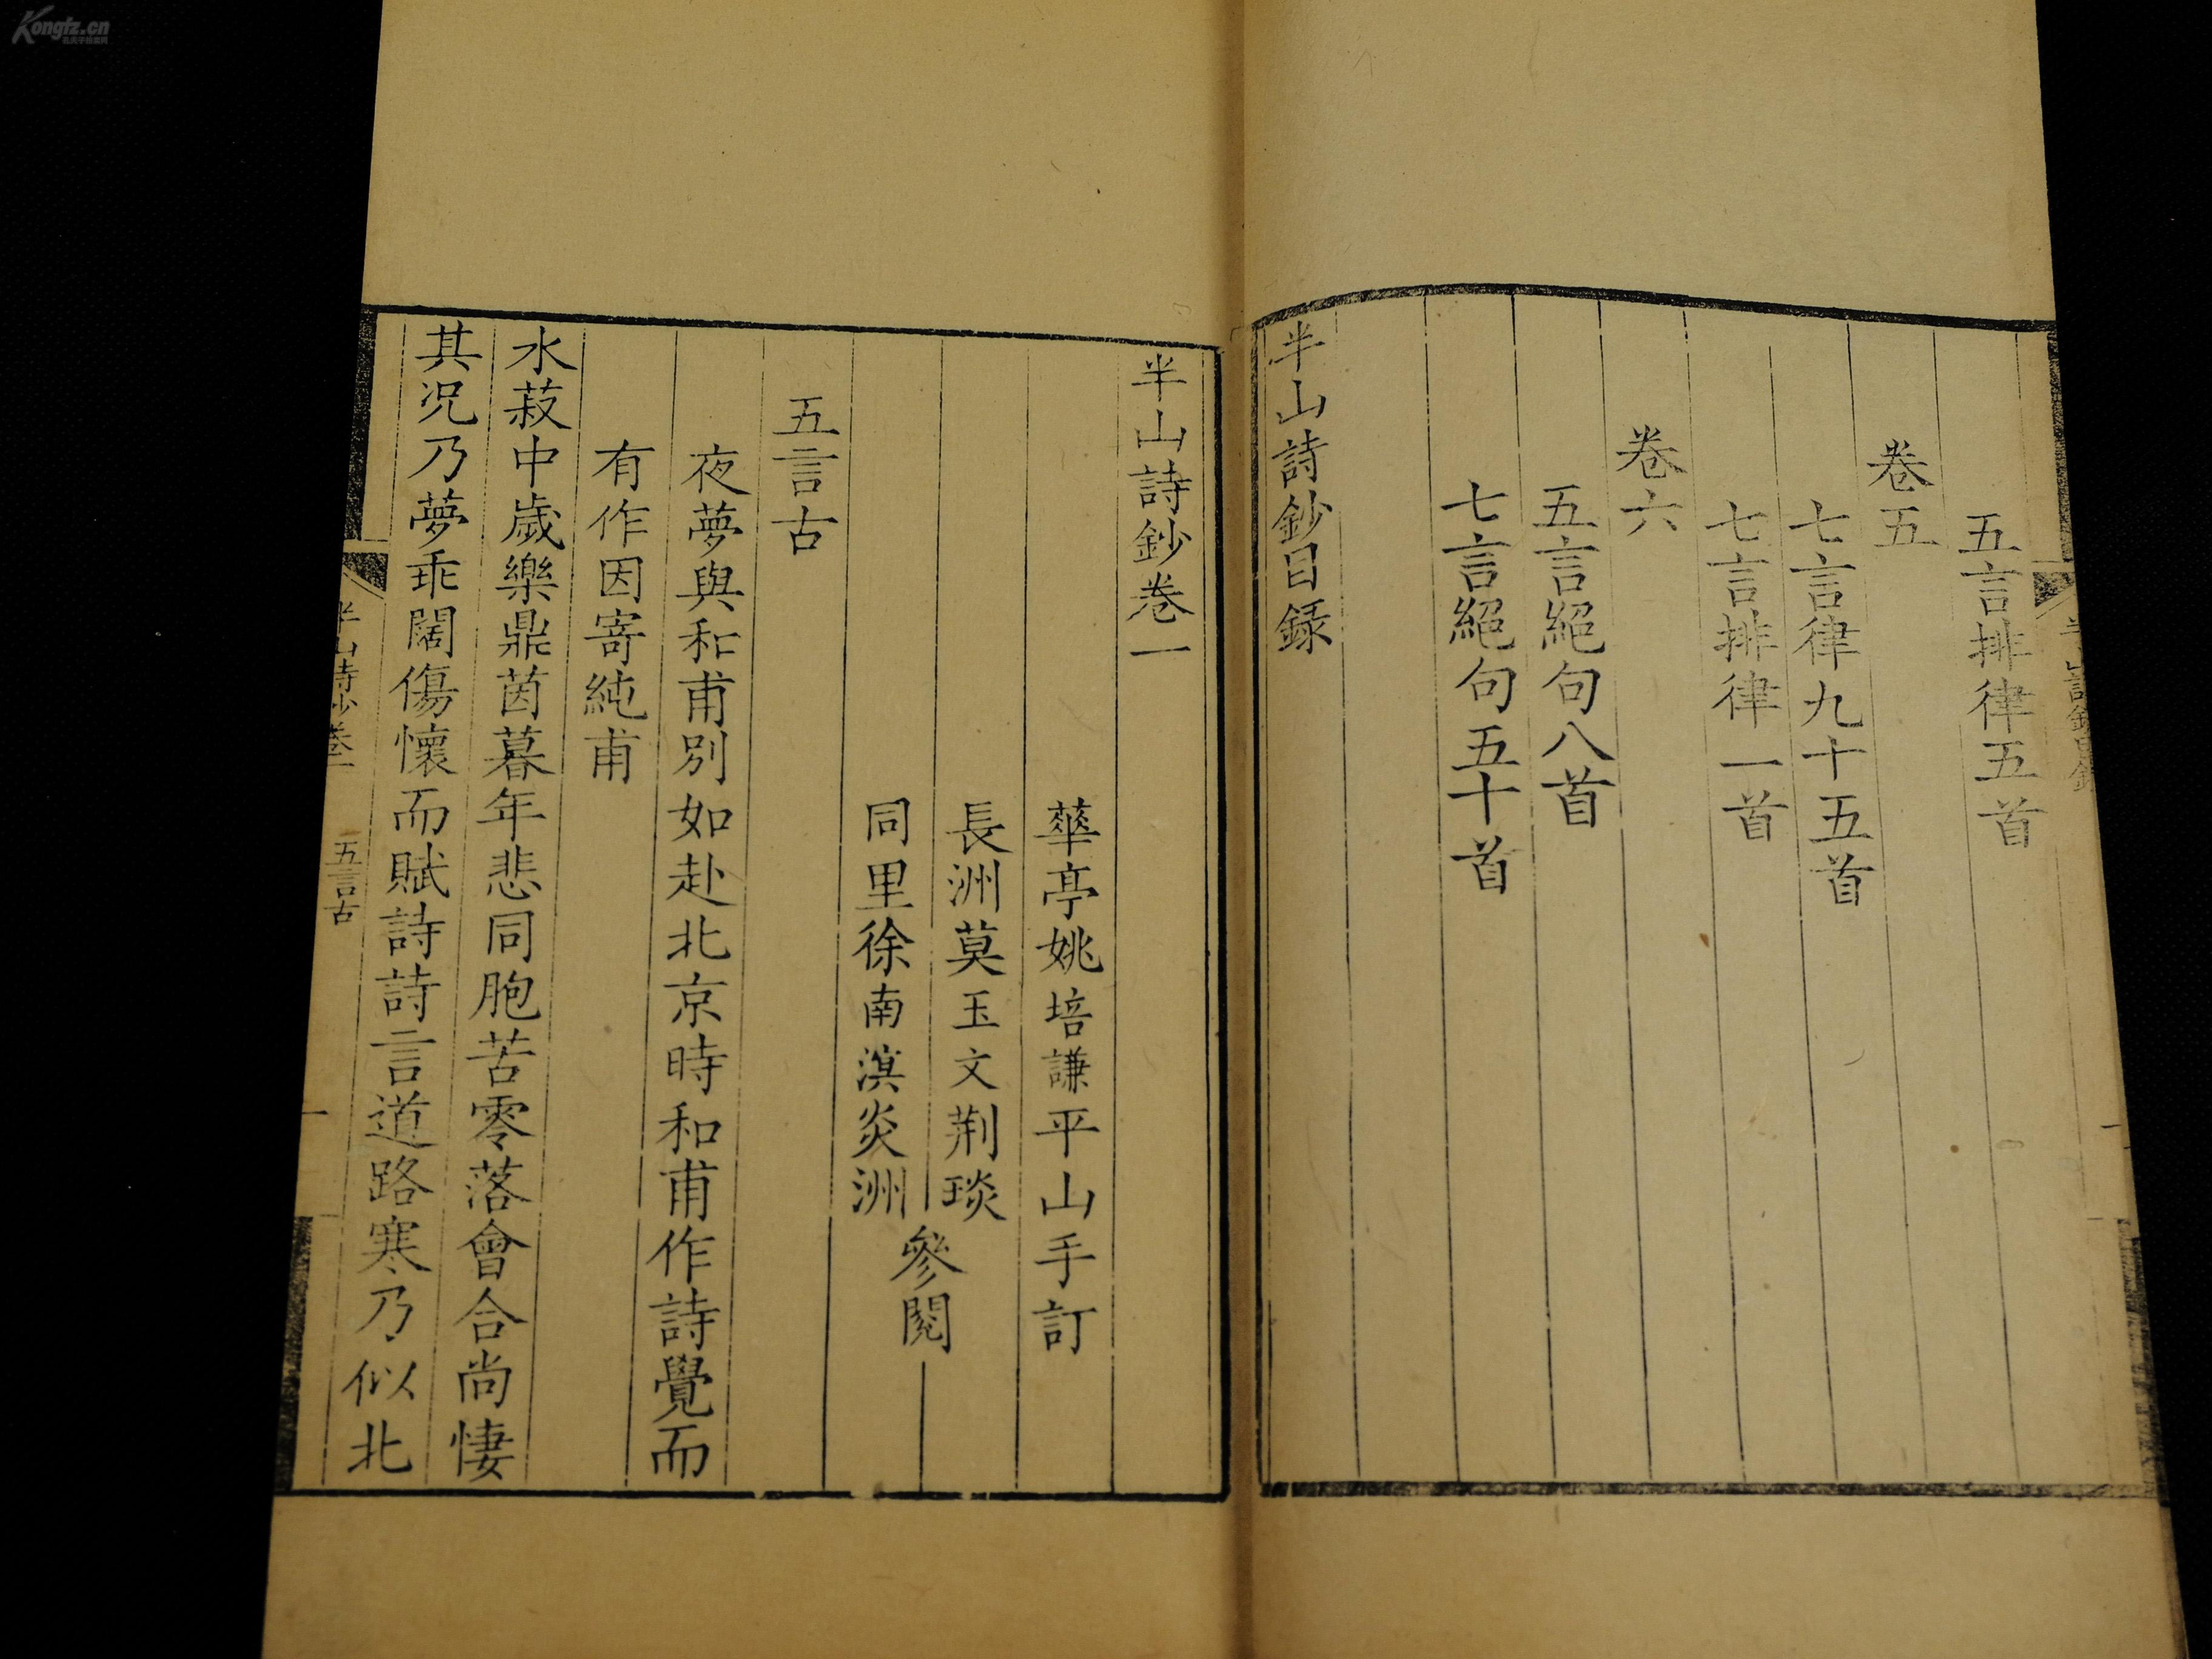 Kongfz.cn
五言排律五首
卷五
七言律九十五首
七言排律一首
卷六
五言絕句八首
七言絕句五十首
半山詩鈔目録
半山詩鈔卷一
華亭姚培謙平山手訂
長洲莫玉文荆琰
同里徐南溟炎洲
參閱
五言古
夜夢與和甫別如赴北京時和甫作詩覺而
有作因寄純甫
水菽中歲樂鼎茵暮年悲同胞苦零落會合尚悽
其况乃夢乖闊傷懷而賦詩詩言道路寒乃似北
半山詩鈔卷一
五言古
一